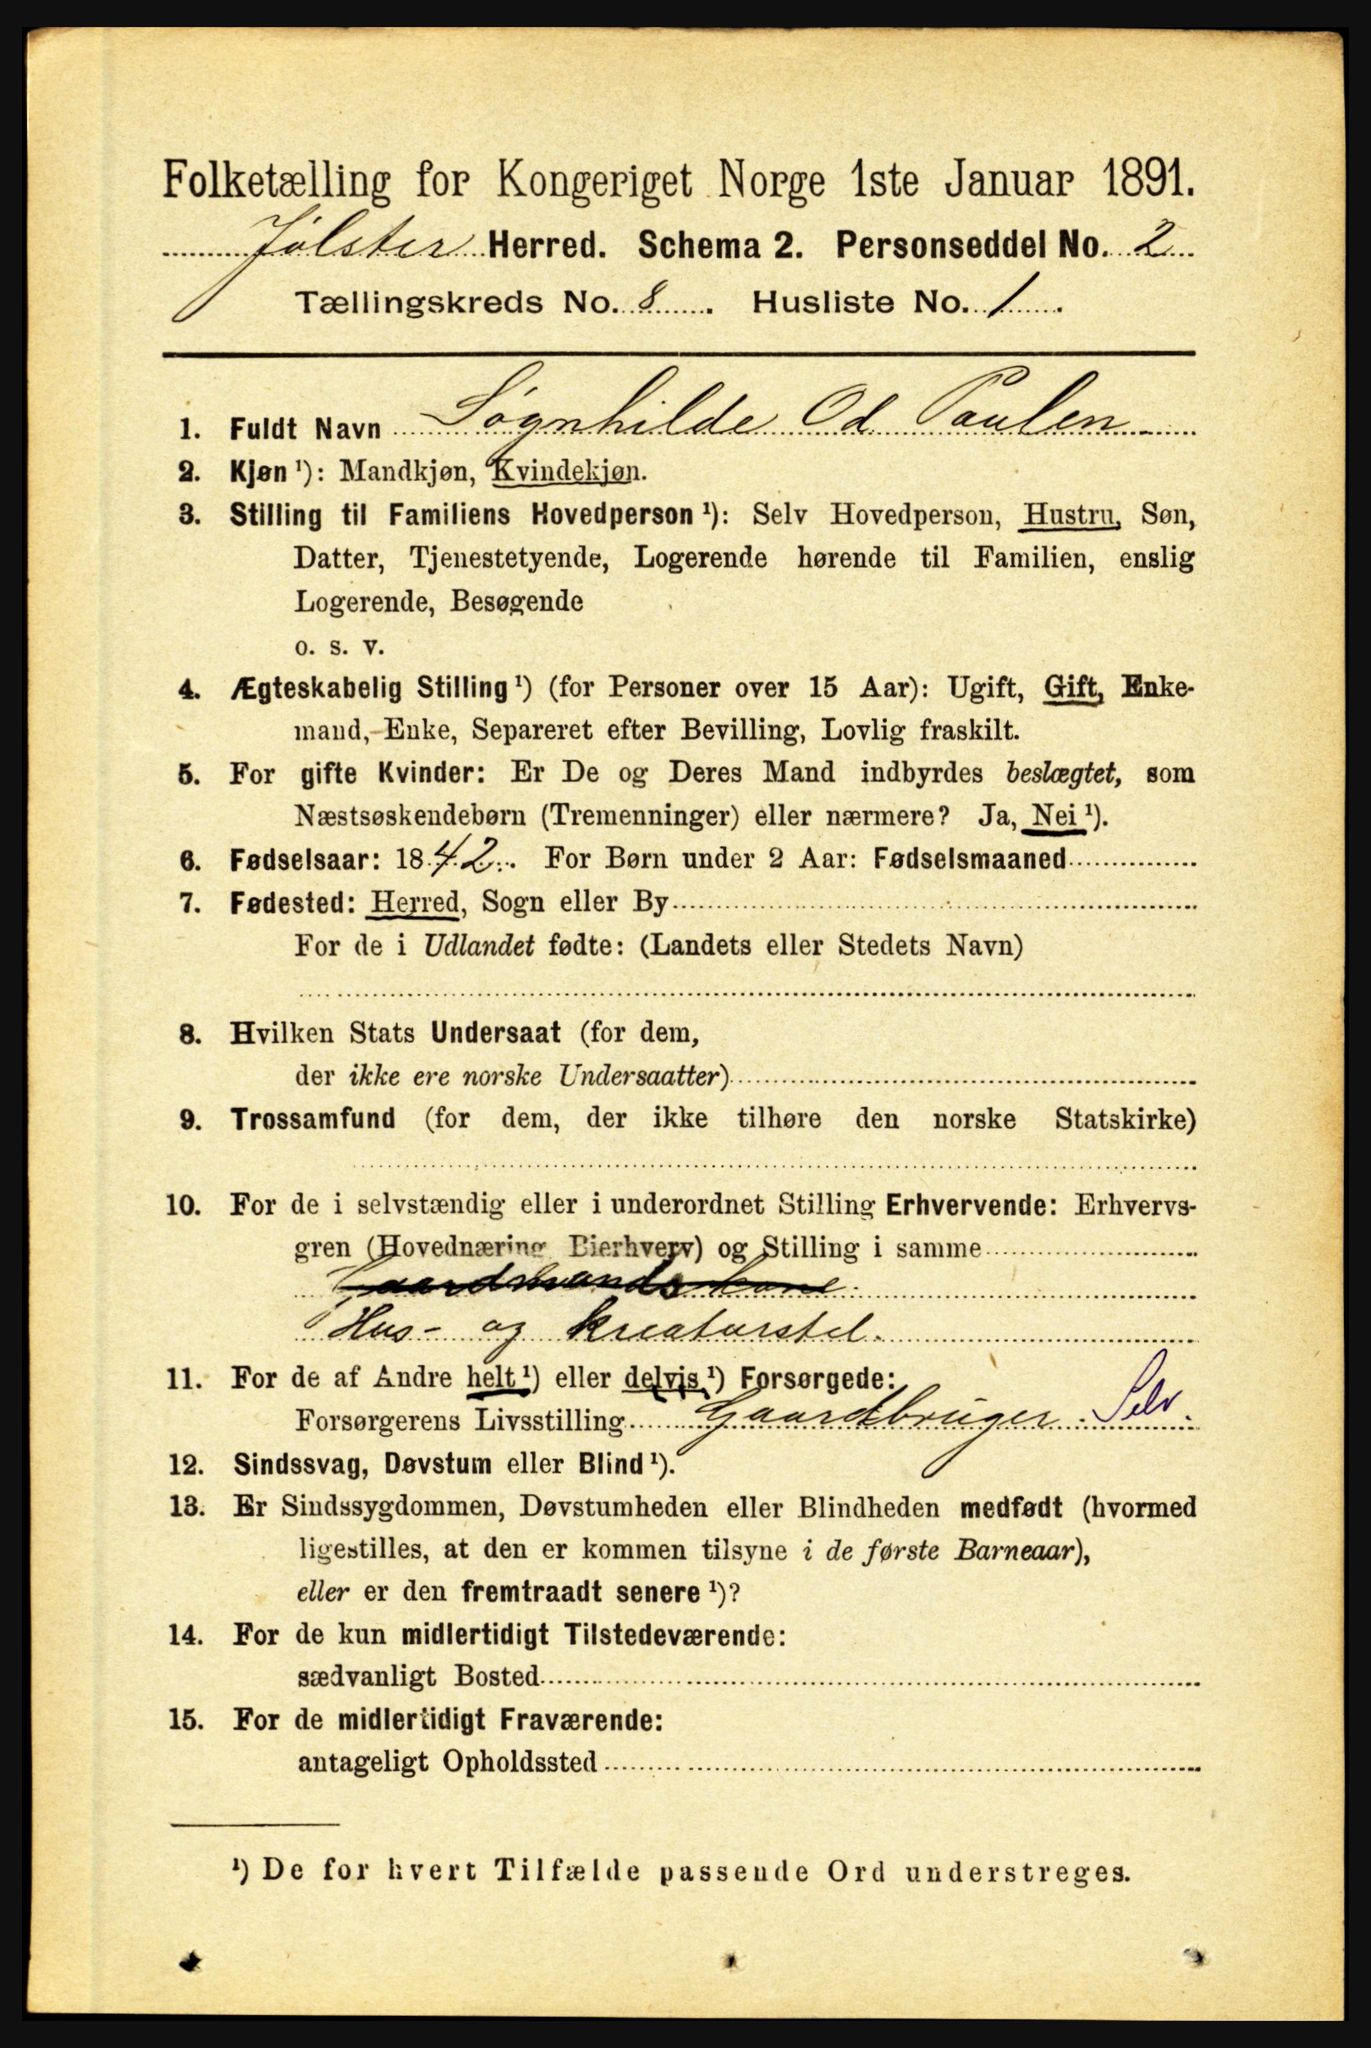 Folketælling for Kongeriget Norge 1ste Januar 1891.
Jølster Herred. Schema 2. Personseddel No. 2
Tællingskreds No. 8. Husliste No. 1.
1. Fuldt Navn Søgnhilde Od Paulen
2. Kjøn ¹): Mandkjøn, Kvindekjøn.
3. Stilling til Familiens Hovedperson ¹): Selv Hovedperson, Hustru, Søn,
Datter, Tjenestetyende, Logerende hørende til Familien, enslig
Logerende, Besøgende
o. s. v.
4. Ægteskabelig Stilling ¹) (for Personer over 15 Aar): Ugift, Gift, Enke-
mand, Enke, Separeret efter Bevilling, Lovlig fraskilt.
5. For gifte Kvinder: Er De og Deres Mand indbyrdes beslægtet, som
Næstsøskendebørn (Tremenninger) eller nærmere? Ja, Nei ¹).
6. Fødselsaar: 1842. For Børn under 2 Aar: Fødselsmaaned
7. Fødested: Herred, Sogn eller By
For de i Udlandet fødte: (Landets eller Stedets Navn)
8. Hvilken Stats Undersaat (for dem,
der ikke ere norske Undersaatter)
9. Trossamfund (for dem, der ikke tilhøre den norske Statskirke)
10. For de i selvstændig eller i underordnet Stilling Erhvervende: Erhvervs-
gren (Hovednæring Bierhverv) og Stilling i samme
Gaardmandskone
Hus- og kreaturstel.
11. For de af Andre helt ¹) eller delvis ¹) Forsørgede:
Forsørgerens Livsstilling Gaardbruger. Selv.
12. Sindssvag, Døvstum eller Blind ¹).
13. Er Sindssygdommen, Døvstumheden eller Blindheden medfødt (hvormed
ligestilles, at den er kommen tilsyne i de første Barneaar),
eller er den fremtraadt senere ¹)?
14. For de kun midlertidigt Tilstedeværende:
sædvanligt Bosted
15. For de midlertidigt Fraværende:
antageligt Opholdssted
¹) De for hvert Tilfælde passende Ord understreges.